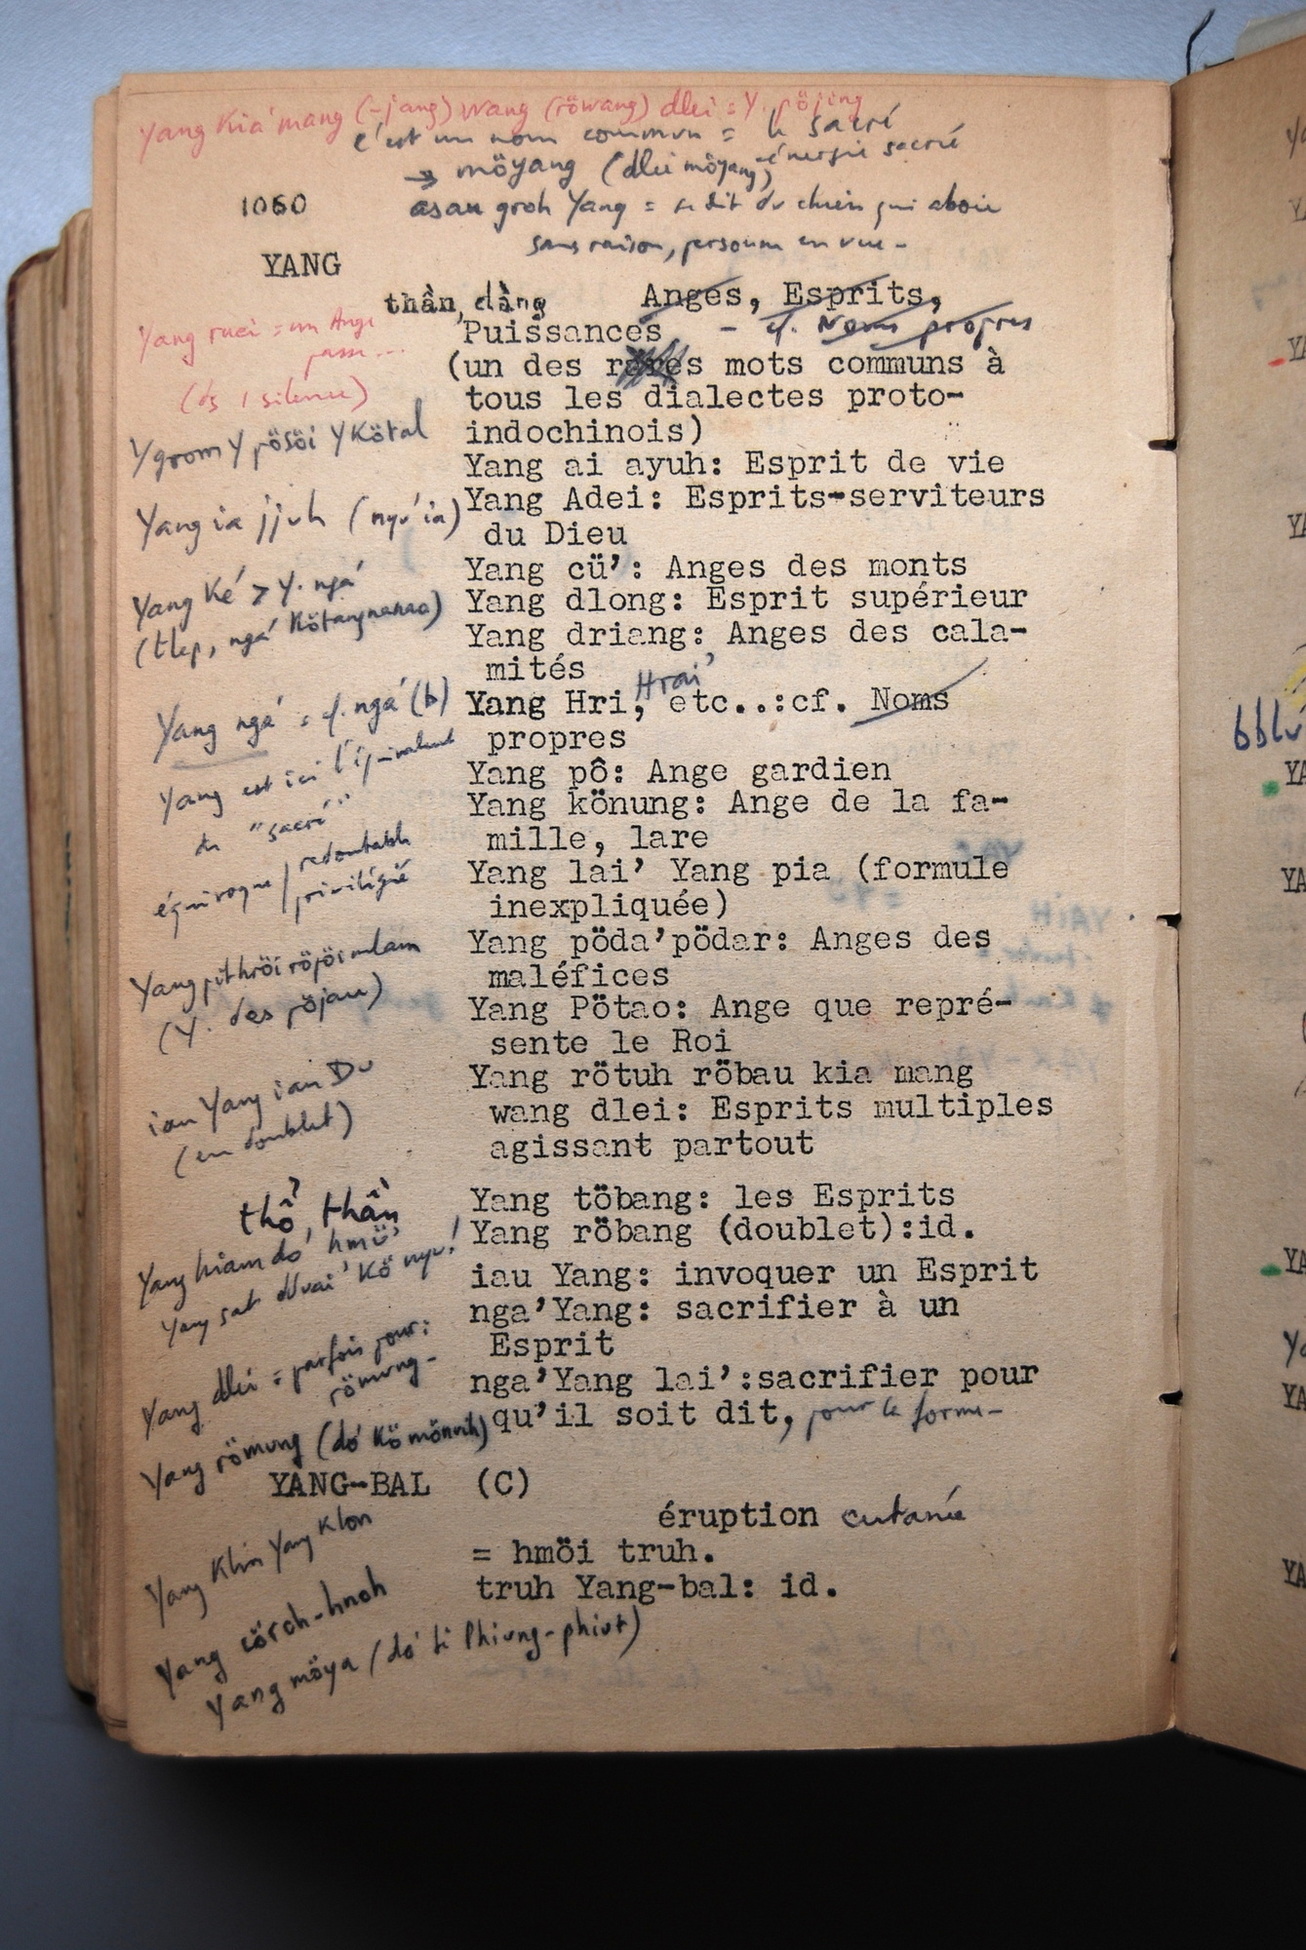 Yang Kia' mang (-jang) wang (röwang) dlei = Y. pöjing
c'est un nom commun = le sacré
→ möyang (dlei möyang) énergie sacrée
1060
asau groh Yang = se dit du chien qui aboie
sans raison, personne en vue -
YANG
thần, dàng Anges, Esprits,
Puissances - cf. Noms propres
(un des rares mots communs à
tous les dialectes proto-
indochinois)
Yang ai ayuh: Esprit de vie
Yang Adei: Esprits-serviteurs
du Dieu
Yang cü': Anges des monts
Yang dlong: Esprit supérieur
Yang driang: Anges des cala-
mités
Yang Hri, Hrai' etc..:cf. Noms
propres
Yang pô: Ange gardien
Yang könung: Ange de la fa-
mille, lare
Yang lai' Yang pia (formule
inexpliquée)
Yang pöda'pödar: Anges des
maléfices
Yang Pötao: Ange que repré-
sente le Roi
Yang rötuh röbau kia mang
wang dlei: Esprits multiples
agissant partout
Yang töbang: les Esprits
Yang röbang (doublet):id.
iau Yang: invoquer un Esprit
nga'Yang: sacrifier à un
Esprit
nga'Yang lai':sacrifier pour
qu'il soit dit, pour la forme-
YANG-BAL (C)
éruption cutanée
= hmöi truh.
truh Yang-bal: id.
Yang ruai = un Ange
passe...
(ds 1 silence)
Y grom Y pösöi Y Kötal
Yang ia jjuh (nyu' ia)
Yang Ké' > Y. ngá'
(tlep, ngá' Kötang nanao)
Yang ngá' = cf. ngá' (b)
Yang est ici l'équivalent
du "sacré"
équivoque / redoutable
privilégié
Yang pithröi röpöi mlam
(Y. des pöjau)
iau Yang iau Du
(en doublet)
thổ, thần
Yang hiam dó' hmü'
Yang sat đuai' Kö nyu!
Yang dlei = parfois pour:
römung-
Yang römung (dó' Kö mönuih)
Yang Klin Yang Klon
Yang cöroh-hnoh
Yang möya (dó' ti Phiung-phiut)